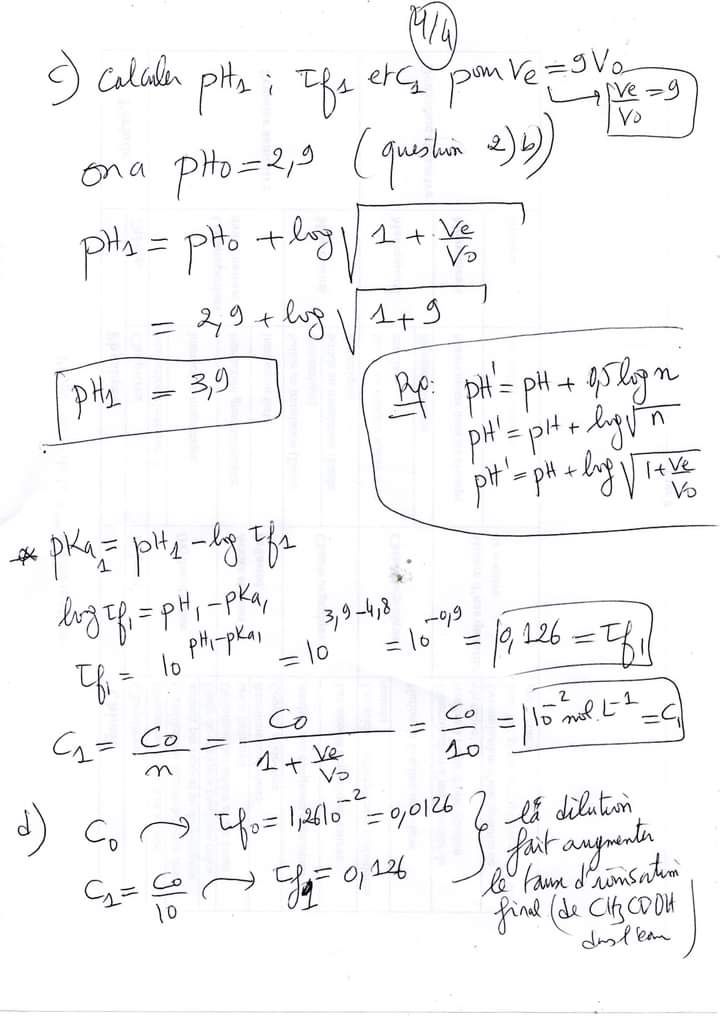 4/4
c) Calculer pH₁ ; τf₁ et C₁ pour Ve = 9V₀
Ve/V₀ = 9
on a pH₀ = 2,9 (question 2)b))
pH₁ = pH₀ + log √(1 + Ve/V₀)
= 2,9 + log √(1 + 9)
pH₁ = 3,9
Rp: pH' = pH + 0,5 log n
pH' = pH + log √n
pH' = pH + log √(1 + Ve/V₀)
* pKa₁ = pH₁ - log τf₁
log τf₁ = pH₁ - pKa₁
τf₁ = 10^(pH₁-pKa₁) = 10^(3,9-4,8) = 10^(-0,9) = 0,126 = τf₁
C₁ = C₀/n = C₀/(1 + Ve/V₀) = C₀/10 = 10⁻² mol.L⁻¹ = C₁
d) C₀ → τf₀ = 1,26 10⁻² = 0,0126
C₁ = C₀/10 → τf₁ = 0,126
la dilution
fait augmenter
le taux d'ionisation
final (de CH₃COOH
dans l'eau)